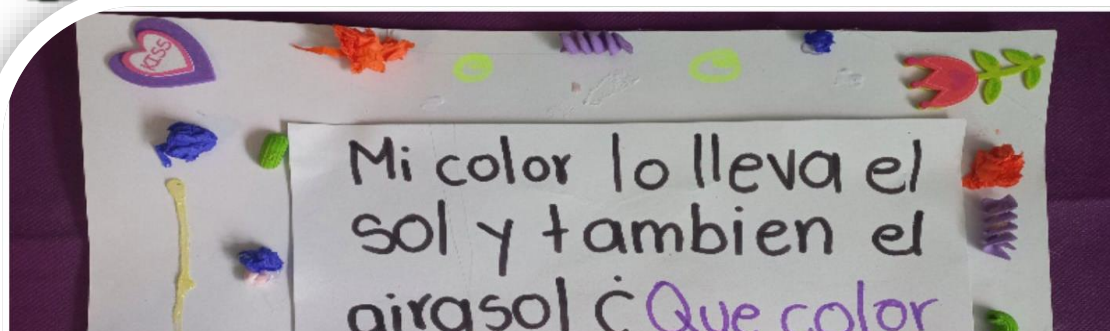 KISS
Mi color lo lleva el
sol y tambien el
girasol ¿Que color